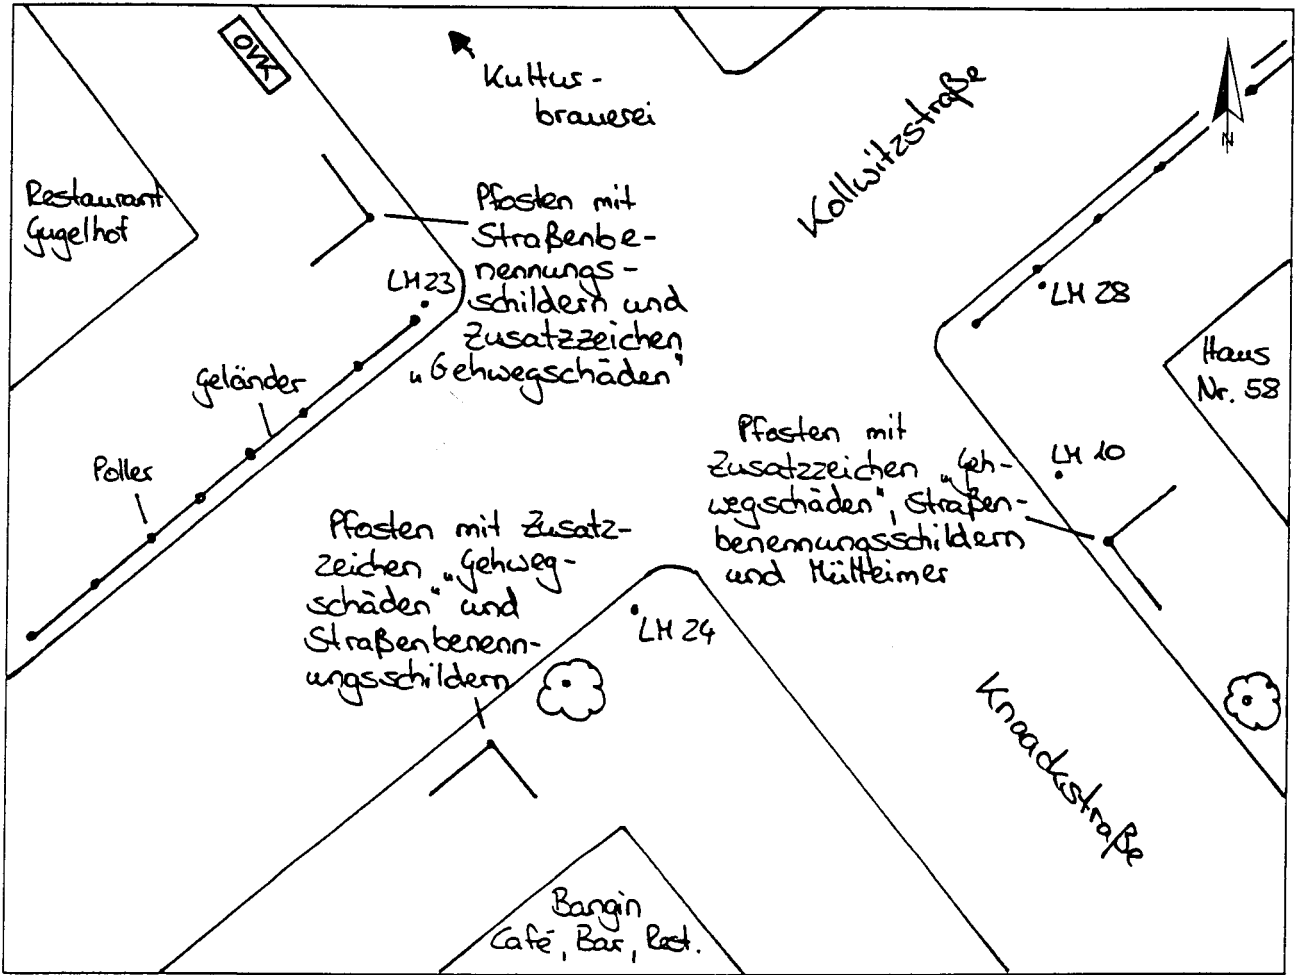 ÖVK
Kultur-
brauerei
Kollwitzstraße
N
Restaurant
Gugelhof
Pfosten mit
Straßenbe-
nennungs-
schildern und
Zusatzzeichen
„Gehwegschäden“
LM 23
LM 28
Haus
Nr. 58
Geländer
Poller
Pfosten mit
Zusatzzeichen „Geh-
wegschäden“, Straßen-
benennungsschildern
und Mülleimer
LM 10
Pfosten mit Zusatz-
zeichen „Gehweg-
schäden“ und
Straßenbenenn-
ungsschildern
LM 24
Knaackstraße
Bangin
Café, Bar, Rest.